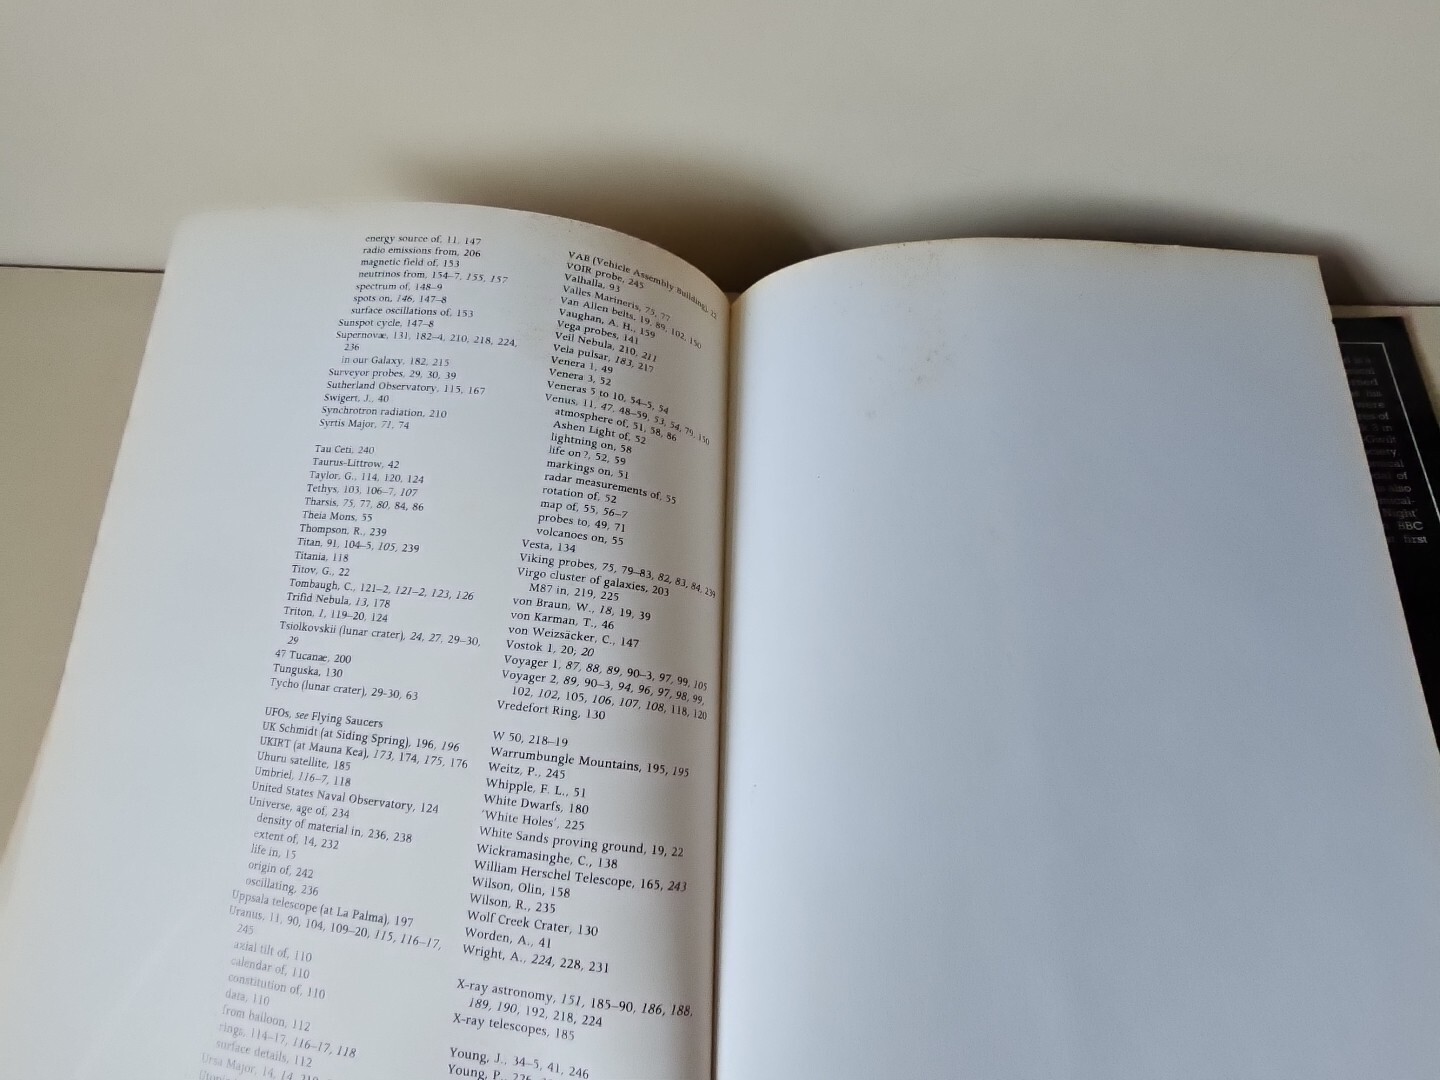 energy source of, 11, 147
radio emissions from, 206
magnetic field of, 153
neutrinos from, 154–7, 155, 157
spectrum of, 148–9
spots on, 146, 147–8
surface oscillations of, 153
Sunspot cycle, 147–8
Supernovæ, 131, 182–4, 210, 218, 224,
236
in our Galaxy, 182, 215
Surveyor probes, 29, 30, 39
Sutherland Observatory, 115, 167
Swigert, J., 40
Synchrotron radiation, 210
Syrtis Major, 71, 74
Tau Ceti, 240
Taurus-Littrow, 42
Taylor, G., 114, 120, 124
Tethys, 103, 106–7, 107
Tharsis, 75, 77, 80, 84, 86
Theia Mons, 55
Thompson, R., 239
Titan, 91, 104–5, 105, 239
Titania, 118
Titov, G., 22
Tombaugh, C., 121–2, 121–2, 123, 126
Trifid Nebula, 13, 178
Triton, 1, 119–20, 124
Tsiolkovskii (lunar crater), 24, 27, 29–30,
29
47 Tucanæ, 200
Tunguska, 130
Tycho (lunar crater), 29-30, 63
UFOs, see Flying Saucers
UK Schmidt (at Siding Spring), 196, 196
UKIRT (at Mauna Kea), 173, 174, 175, 176
Uhuru satellite, 185
Umbriel, 116–7, 118
United States Naval Observatory, 124
Universe, age of, 234
density of material in, 236, 238
extent of, 14, 232
life in, 15
origin of, 242
oscillating, 236
Uppsala telescope (at La Palma), 197
Uranus, 11, 90, 104, 109–20, 115, 116–17,
245
axial tilt of, 110
calendar of, 110
constitution of, 110
data, 110
from balloon, 112
rings, 114–17, 116–17, 118
surface details, 112
Ursa Major, 14, 14, 210
VAB (Vehicle Assembly Building), 22
VOIR probe, 245
Valhalla, 93
Valles Marineris, 75, 77
Van Allen belts, 19, 89, 102, 150
Vaughan, A. H., 159
Vega probes, 141
Veil Nebula, 210, 211
Vela pulsar, 183, 217
Venera 1, 49
Venera 3, 52
Veneras 5 to 10, 54–5, 54
Venus, 11, 47, 48–59, 53, 54, 79, 150
atmosphere of, 51, 58, 86
Ashen Light of, 52
lightning on, 58
life on?, 52, 59
markings on, 51
radar measurements of, 55
rotation of, 52
map of, 55, 56–7
probes to, 49, 71
volcanoes on, 55
Vesta, 134
Viking probes, 75, 79–83, 82, 83, 84, 239
Virgo cluster of galaxies, 203
M87 in, 219, 225
von Braun, W., 18, 19, 39
von Karman, T., 46
von Weizsäcker, C., 147
Vostok 1, 20; 20
Voyager 1, 87, 88, 89, 90–3, 97, 99, 105
Voyager 2, 89, 90–3, 94, 96, 97, 98, 99,
102, 102, 105, 106, 107, 108, 118, 120
Vredefort Ring, 130
W 50, 218–19
Warrumbungle Mountains, 195, 195
Weitz, P., 245
Whipple, F. L., 51
White Dwarfs, 180
'White Holes', 225
White Sands proving ground, 19, 22
Wickramasinghe, C., 138
William Herschel Telescope, 165, 243
Wilson, Olin, 158
Wilson, R., 235
Wolf Creek Crater, 130
Worden, A., 41
Wright, A., 224, 228, 231
X-ray astronomy, 151, 185–90, 186, 188,
189, 190, 192, 218, 224
X-ray telescopes, 185
Young, J., 34–5, 41, 246
Young, P.
also
Night'
BBC
first